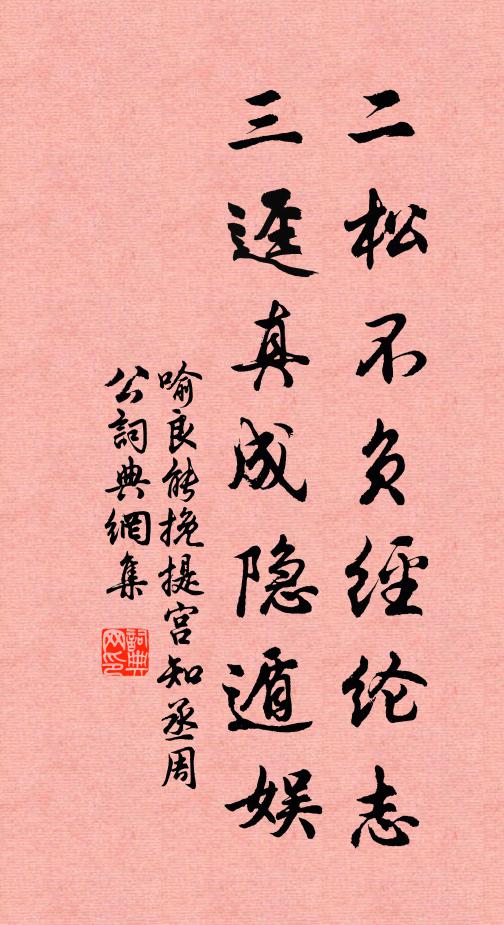 二松不负經纶志
三迳真成隐遁娱
喻良能挽提宫知丞周
公詞典網集
詞典网印